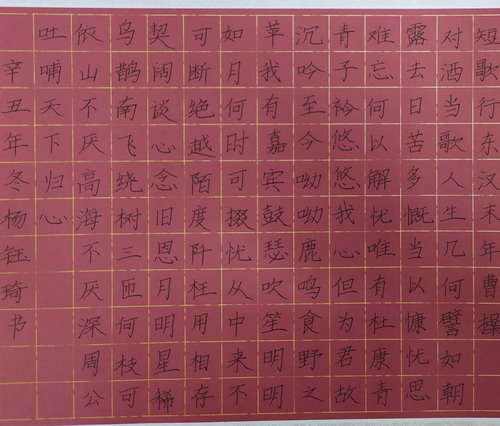 短歌行东汉末年曹操
对酒当歌人生几何譬如朝
露去日苦多慨当以慷忧思
难忘何以解忧唯有杜康青
青子衿悠悠我心但为君故
沉吟至今呦呦鹿鸣食野之
苹我有嘉宾鼓瑟吹笙明明
如月何时可掇忧从中来不
可断绝越陌度阡枉用相存
契阔谈心念旧恩月明星稀
乌鹊南飞绕树三匝何枝可
依山不厌高海不厌深周公
吐哺天下归心
辛丑年冬杨钰琦书